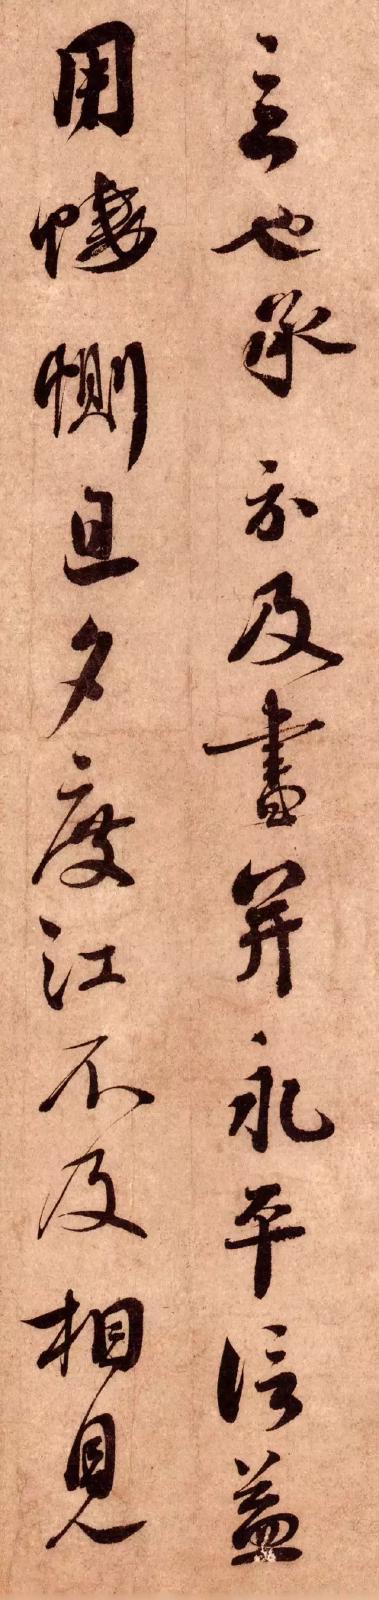 言也承示及書并永平信益
用悽惻旦夕度江不及相見